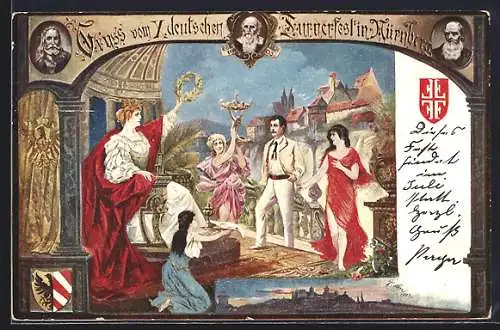 Gruss vom X. deutschen Turnerfest in Nürnberg
Dieses
Fest
findet
im
Juli
statt.
Herzl.
Gruß